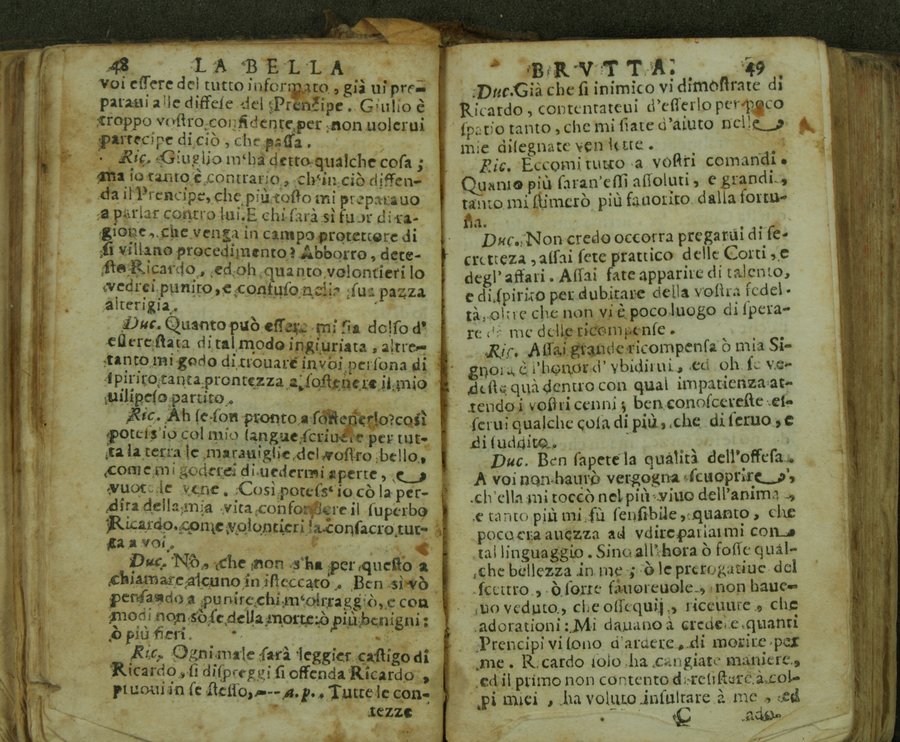 48 LA BELLA
voi essere del tutto informato, già ui pre-
paraui alle diffese del Prencipe. Giulio è
troppo vostro confidente per non uolerui
partecipe di ciò, che passa.
Ric. Giuglio m'ha detto qualche cosa;
ma io tanto è contrario, ch'in ciò diffen-
da il Prencipe, che più tosto mi preparauo
a parlar contro lui. E chi sarà sì fuor di ra-
gione, che venga in campo protettore di
sì villano procedimento? Abborro, dete-
sto Ricardo, ed oh quanto volontieri lo
vedrei punito, e confuso nella sua pazza
alterigia.
Duc. Quanto può essere mi sia dolso d'
essere stata di tal modo ingiuriata, altre-
tanto mi godo di trouare in voi persona di
spirito tanta prontezza a sostenere il mio
uilipeso partito.
Ric. Ah se son pronto a sostenerlo? così
potess'io col mio sangue scriuere per tut-
ta la terra le marauiglie del vostro bello,
come mi goderei di uedermi aperte, e
vuote le vene. Così potess'io cò la per-
dita della mia vita confondere il superbo
Ricardo, come volontieri la consacro tut-
ta a voi.
Duc. Nò, che non s'ha per questo a
chiamare alcuno in isteccato. Ben sì vò
pensando a punire chi m'oltraggiò, e con
modi non sò se della morte: ò più benigni:
ò più fieri.
Ric. Ogni male sarà leggier castigo di
Ricardo, si dispreggi si offenda Ricardo,
pruoui in se stesso, --- a.p. Tutte le con-
tezze
BRVTTA. 49
Duc. Già che sì inimico vi dimostrate di
Ricardo, contentateui d'esserlo per poco
spatio tanto, che mi siate d'aiuto nelle
mie disegnate vendette.
Ric. Eccomi tutto a vostri comandi.
Quanto più saran'essi assoluti, e grandi,
tanto mi stimerò più fauorito dalla fortu-
na.
Duc. Non credo occorra pregarui di se-
cretezza, assai sete prattico delle Corti, e
degl'affari. Assai fate apparire di talento,
e di spirito per dubitare della vostra fedel-
tà, oltre che non vi è poco luogo di spera-
re da me delle ricompense.
Ric. Assai grande ricompensa ò mia Si-
gnora è l'honor d'vbidirui, ed oh se ve-
deste quà dentro con qual impatienza at-
tendo i vostri cenni; ben conoscereste es-
serui qualche cosa di più, che di seruo, e
di suddito.
Duc. Ben sapete la qualità dell'offesa.
A voi non haurò vergogna scuoprire,
ch'ella mi toccò nel più viuo dell'anima,
e tanto più mi fù sensibile, quanto, che
poco era auezza ad vdire parlarmi con
tal linguaggio. Sino all'hora ò fosse qual-
che bellezza in me; ò le prerogatiue del
scettro, ò sorte fauoreuole, non haue-
uo veduto, che ossequij, riceuute, che
adorationi: Mi dauano à credere quanti
Prencipi vi sono d'ardere, di morire per
me. Ricardo solo ha cangiate maniere,
ed il primo non contento di resistere a col-
pi miei, ha voluto insultare à me, ed
C ado.